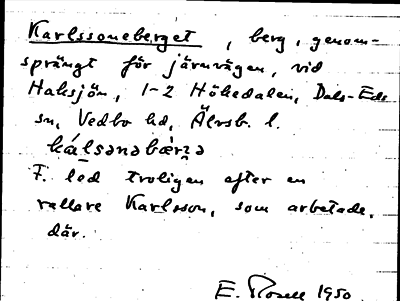 Karlssoneberget, berg, genom-
sprängt för järnvägen, vid
Haksjön, 1-2 Hökedalen, Dals-Eds
sn, Vedbo hd, Älvsb. l.
ká̱lsənəbær̀ɜə
F. led troligen efter en
rallare Karlsson, som arbetade.
där.
E. Rosell 1950